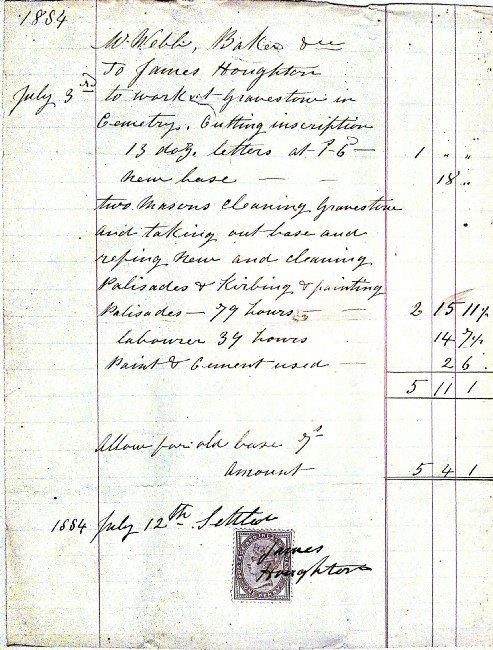 1884
Mr Webb, Baker &c
To James Houghton
July 3rd to work at Gravestone in
Cemetry. Cutting inscription
13 doz. letters at 1 " "
New base — — 18 "
two Masons cleaning Gravestone
and taking out base and
refing New and cleaning
Palisades & Kirbing & painting
Palisades — 79 hours — — 2 15 11½
labourer 39 hours 14 7½
Paint & Cement used — 2 6
5 11 1
Allow for old base 7s
Amount 5 4 1
1884 July 12th Settled
James
Houghton